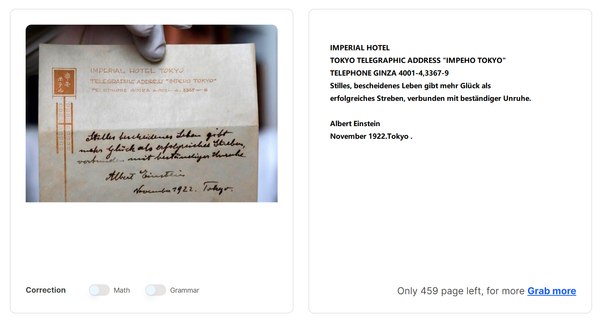 帝国ホテル
IMPERIAL HOTEL TOKYO
TELEGRAPHIC ADDRESS "IMPEHO TOKYO"
TELEPHONE GINZA 4001-4, 3367-9
Stilles bescheidenes Leben gibt
mehr Glück als erfolgreiches Streben,
verbunden mit beständiger Unruhe.
Albert Einstein
November 1922. Tokyo.
Correction
Math
Grammar
IMPERIAL HOTEL
TOKYO TELEGRAPHIC ADDRESS "IMPEHO TOKYO"
TELEPHONE GINZA 4001-4,3367-9
Stilles, bescheidenes Leben gibt mehr Glück als
erfolgreiches Streben, verbunden mit beständiger Unruhe.
Albert Einstein
November 1922.Tokyo .
Only 459 page left, for more Grab more